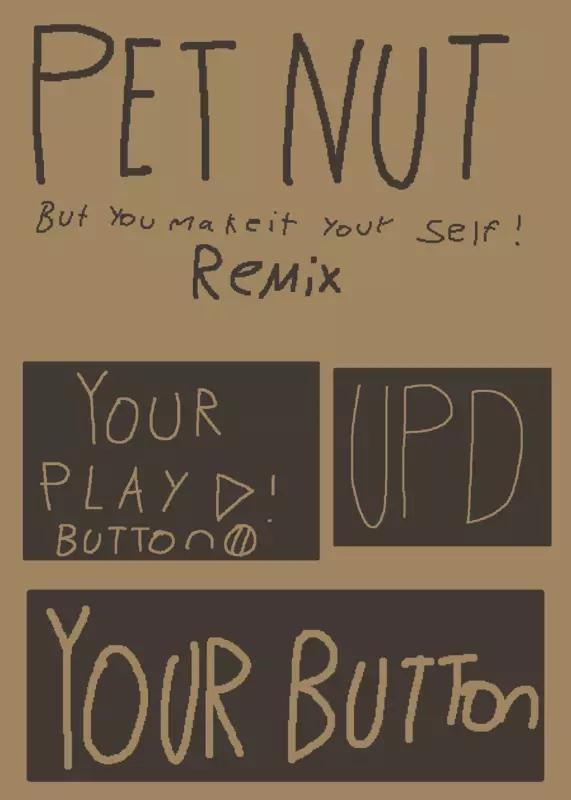 PET NUT
But You makeit Your Self!
Remix
YOUR
PLAY !
BUTTOn
UPD
YOUR BUTTon